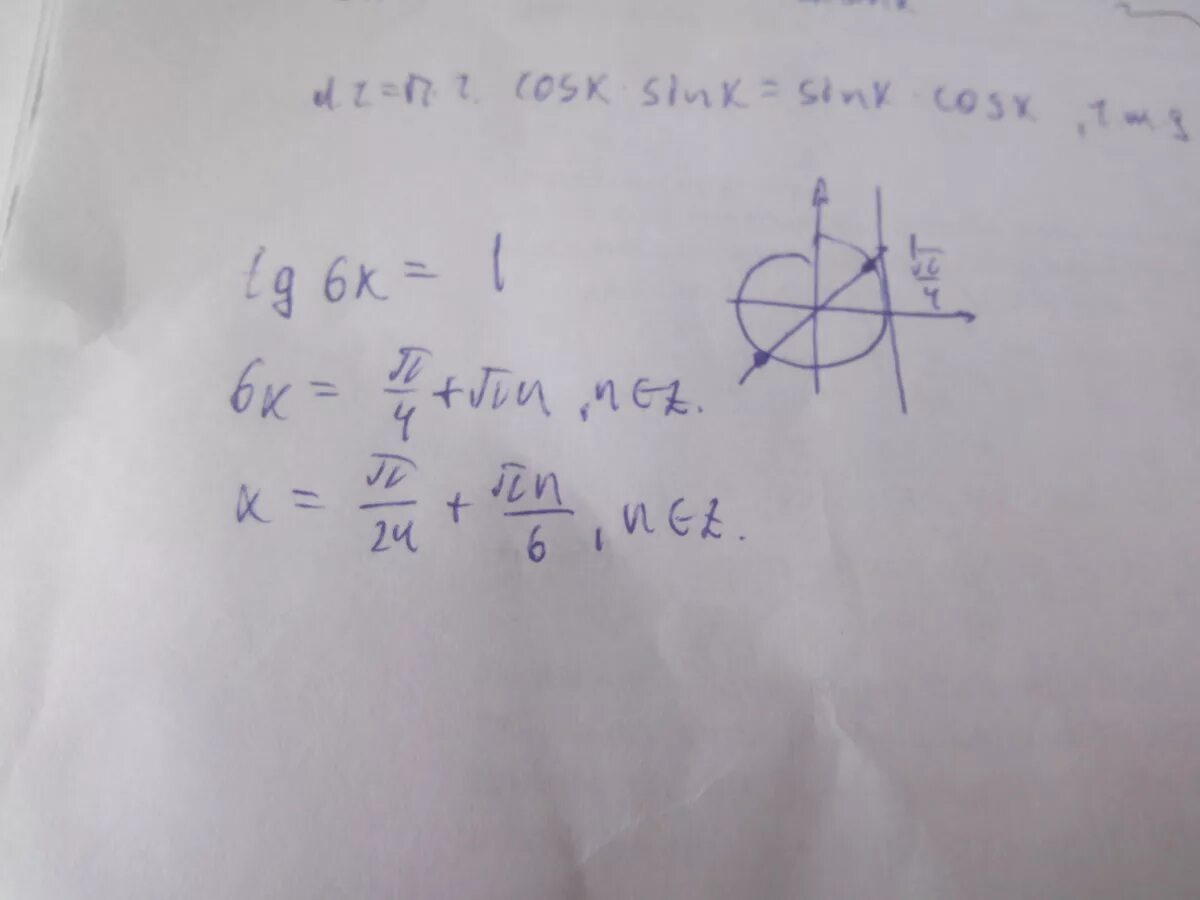 cosx · sinx = sinx · cosx
tg 6x = 1
1
π/4
6x = π/4 + πn, n∈Z.
x = π/24 + πn/6, n∈Z.